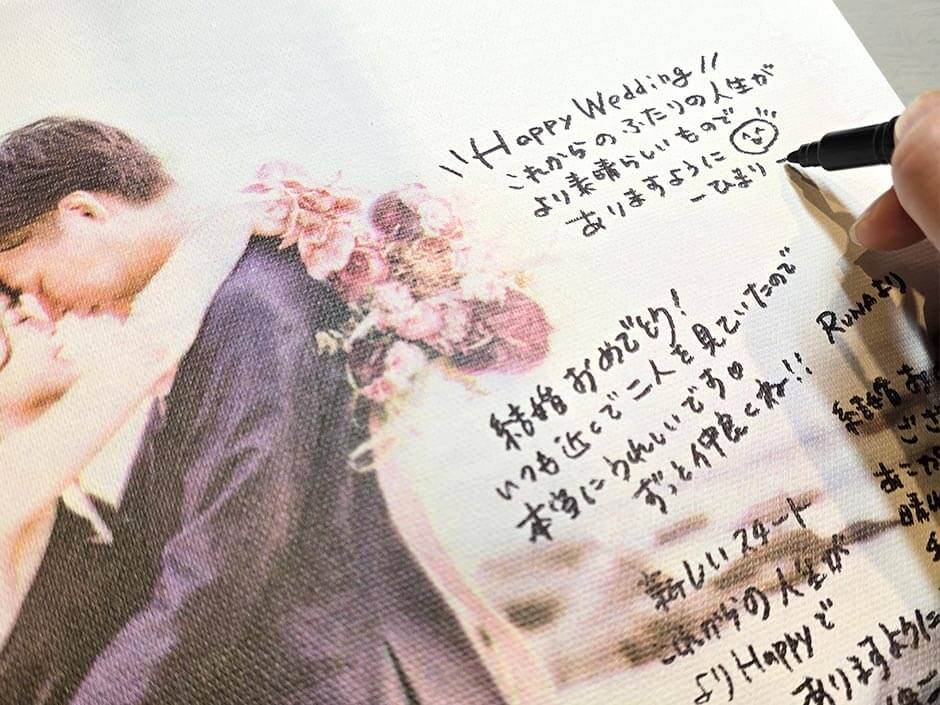 \\Happy Wedding//
これからのふたりの人生が
より素晴らしいもので
ありますように
-ひまり-
結婚おめでとう!
いつも近くで二人を見ていたので
本当にうれしいです♡
ずっと仲良くね!!
RUNAより
結婚お
ござ
あこが
晴
新しいスタート
これからの人生が
よりHappyで
ありますように